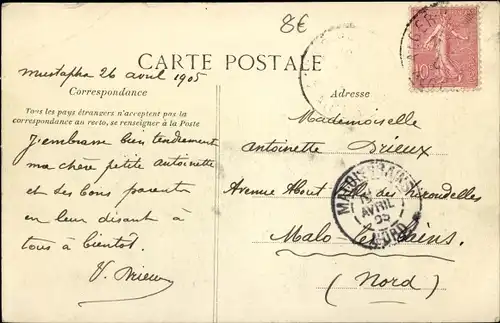 8€
CARTE POSTALE
Mustapha 26 avril 1905
Correspondance
Adresse
Tous les pays étrangers n'acceptent pas la
correspondance au recto, se renseigner à la Poste
J'embrasse bien tendrement
ma chère petite Antoinette
et ses bons parents
en leur disant à
tous à bientôt.
V. Brieux
Mademoiselle
Antoinette Brieux
Avenue About Villa des Hirondelles
Malo-les-Bains.
(Nord)
MALO-LES-BAINS
AVRIL
05
NORD
10